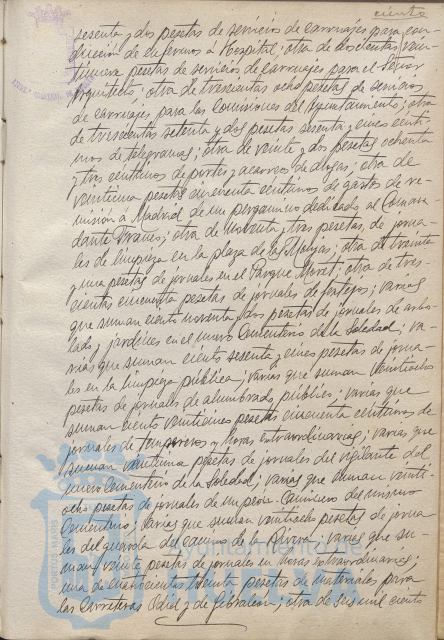 ciento
sesenta y dos pesetas de servicios de carruajes para con-
ducción de enfermos a Hospital; otra de doscientas vein-
tinueve pesetas de servicios de carruajes para el Señor
Arquitecto; otra de trescientas ocho pesetas de servicios
de carruajes para las Comisiones del Ayuntamiento; otra
de trescientas setenta y dos pesetas sesenta y cinco cénti-
mos de telegramas; otra de veinte y dos pesetas ochenta
y tres céntimos de portes y acarreos de drogas; otra de
veintiuna pesetas cincuenta céntimos de gastos de re-
misión a Madrid de un pergamino dedicado al Coman-
dante Franco; otra de noventa y tres pesetas de jorna-
les de limpieza en la plaza de las Monjas; otra de treinta
y una pesetas de jornales en el Parque Moret; otra de tres-
cientas cincuenta pesetas de jornales de festejos; varias
que suman ciento noventa y dos pesetas de jornales de arbo-
lado y jardines en el nuevo Cementerio de la Soledad; va-
rias que suman ciento sesenta y cinco pesetas de jorna-
les en la limpieza pública; varias que suman veintiocho
pesetas de jornales de alumbrado público; varias que
suman ciento veinticinco pesetas cincuenta céntimos de
jornales de temporeros y horas extraordinarias; varias que
suman veintiuna pesetas de jornales del vigilante del
nuevo Cementerio de la Soledad; varias que suman veinti-
ocho pesetas de jornales de un peón-caminero del mismo
Cementerio; varias que suman veintiocho pesetas de jorna-
les del guarda del camino de la Rivera; varias que su-
man veinte pesetas de jornales en horas extraordinarias;
una de cuatrocientas treinta pesetas de materiales para
las Carreteras Odiel y de Gibraleón; otra de seis mil ciento
Ayuntamiento de
HUELVA
PORTUS MARIS